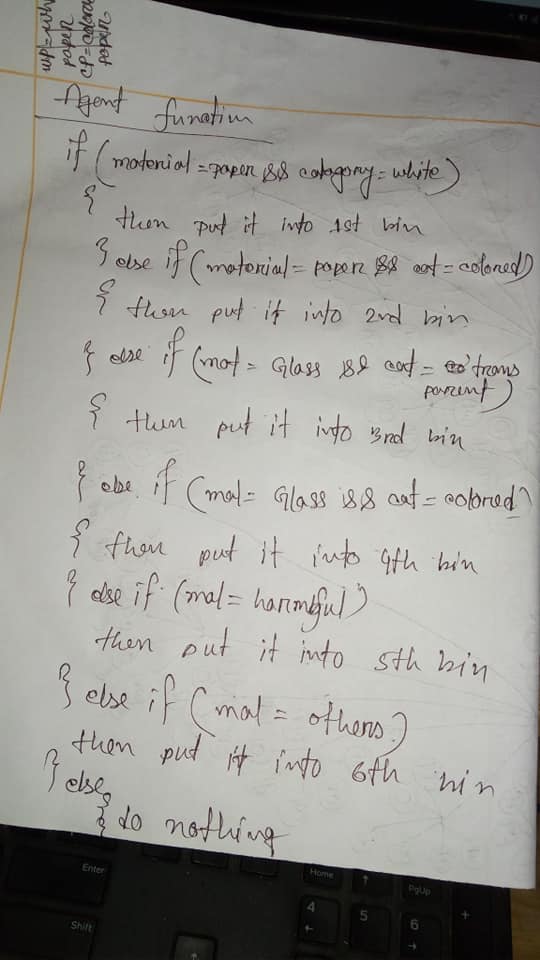 wp = white
paper
cp = colored
paper
Agent function
if (material = paper && catagory = white)
{
then put it into 1st bin
} else if (material = paper && cat = colored)
{ then put it into 2nd bin
} else if (mat = Glass && cat = trans
parent)
{ then put it into 3rd bin
} else if (mat = Glass && cat = colored)
{ then put it into 4th bin
} else if (mat = harmful)
then put it into 5th bin
} else if (mat = others)
then put it into 6th bin
} else
{ do nothing
Enter
Shift
Home
↑
PgUp
4
←
5
6
→
+
↑